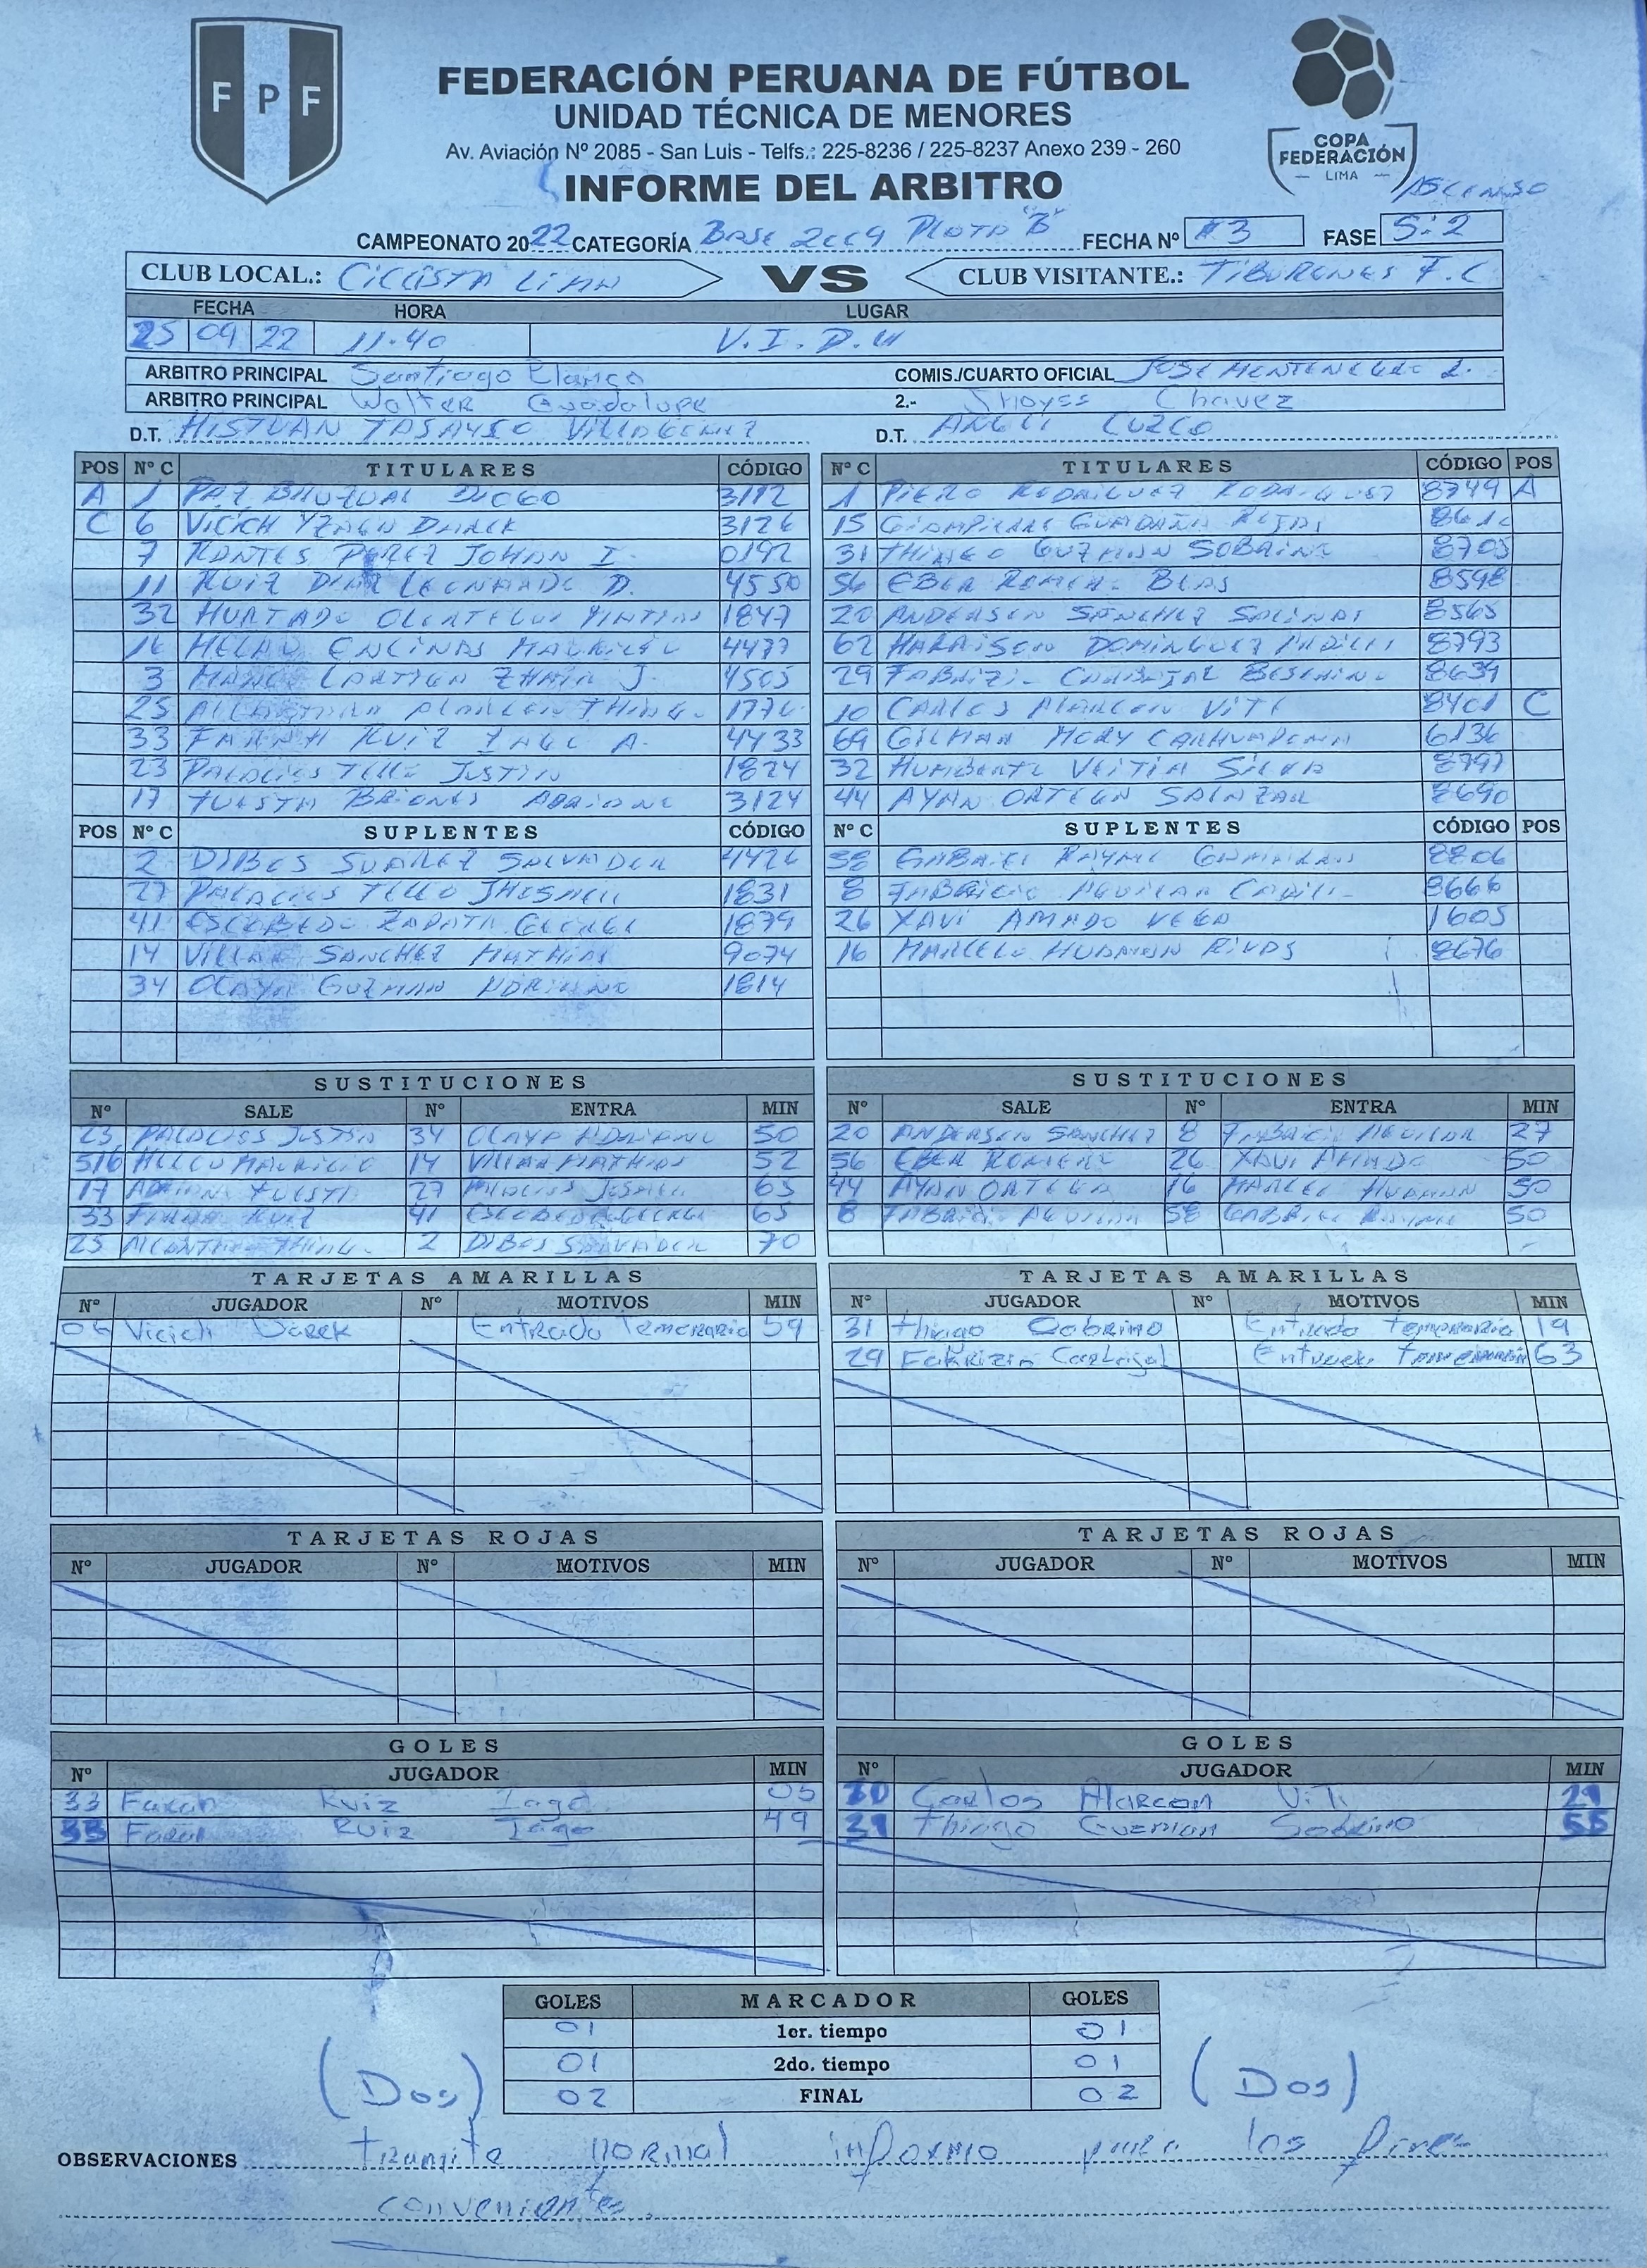 FPF
FEDERACIÓN PERUANA DE FÚTBOL
UNIDAD TÉCNICA DE MENORES
Av. Aviación Nº 2085 - San Luis - Telfs.: 225-8236 / 225-8237 Anexo 239 - 260
INFORME DEL ARBITRO
COPA
FEDERACIÓN
LIMA
Ascenso
CAMPEONATO 2022 CATEGORÍA Base 2009 "B" FECHA Nº #3 FASE S:2
CLUB LOCAL.: Ciclista Lima VS CLUB VISITANTE.: TIBURONES F.C
FECHA HORA LUGAR
25 09 22 11:40 V.I.D.U
ARBITRO PRINCIPAL Santiago COMIS./CUARTO OFICIAL JOSE MONTENEGRO
ARBITRO PRINCIPAL Walter Guadalupe 2.- Jhoyss Chavez
D.T. HISTVAN TASAYCO D.T. ANGEL CUZCO
POS Nº C TITULARES CÓDIGO Nº C TITULARES CÓDIGO POS
A 1 PAZ DIOGO 3112 1 PIERO RODRIGUEZ 8749 A
C 6 VICICH DARCK 3126 15 GIANPIERRE ROJAS
7 PEREZ JOHAN I. 0192 31 THIAGO GUZMAN SOBRINO 8705
11 RUIZ DIAZ LEONARDO D. 4550 56 EBER ROMERO BLAS 8598
32 HURTADO 1847 20 ANDERSON SANCHEZ SALINAS 8565
16 ENCINAS MAURICIO 4477 62 HARRISON DOMINGUEZ 8793
3 J. 4505 29 FABRIZIO 8639
25 1776 10 CARLOS ALARCON VITE 8401 C
33 FARAH RUIZ IAGO A. 4433 69 GILMAR 6136
23 PALACIOS TELLO JUSTIN 1824 32 HUMBERTO VEITIA SILVA 8797
17 TUESTA BRIONES ADRIANO 3124 44 AYAN ORTEGA SALAZAR 8690
POS Nº C SUPLENTES CÓDIGO Nº C SUPLENTES CÓDIGO POS
2 DIBOS SUAREZ SALVADOR 4426 58 GABRIEL 8806
27 PALACIOS TELLO 1831 8 FABRICIO AGUILAR 8666
41 ESCOBEDO ZAPATA GEORGE 1879 26 XAVI AMADO VEGA 1605
14 VILLAR SANCHEZ MATHIAS 9074 16 MARCELO HUAMAN RIVAS 8676
34 OLAYA GUZMAN ADRIANO 1814
SUSTITUCIONES SUSTITUCIONES
Nº SALE Nº ENTRA MIN Nº SALE Nº ENTRA MIN
23 PALACIOS JUSTIN 34 OLAYA ADRIANO 50 20 ANDERSON SANCHEZ 8 FABRICIO AGUILAR 27
MAURICIO 14 VILLAR MATHIAS 52 56 EBER ROMERO 26 XAVI AMADO 50
17 ADRIANO TUESTA 27 PALACIOS 65 44 AYAN ORTEGA 16 MARCELO HUAMAN 50
33 FARAH RUIZ 41 ESCOBEDO GEORGE 65 8 FABRICIO AGUILAR 58 GABRIEL 50
25 2 DIBOS SALVADOR 70
TARJETAS AMARILLAS TARJETAS AMARILLAS
Nº JUGADOR Nº MOTIVOS MIN Nº JUGADOR Nº MOTIVOS MIN
06 Vicich Darek Entrada Temeraria 59 31 Thiago Sobrino Entrada Temeraria 19
29 Fabrizio Entrada Temeraria 63
TARJETAS ROJAS TARJETAS ROJAS
Nº JUGADOR Nº MOTIVOS MIN Nº JUGADOR Nº MOTIVOS MIN
GOLES GOLES
Nº JUGADOR MIN Nº JUGADOR MIN
33 Farah Ruiz Iago 05 10 Carlos Alarcon Viti 29
33 Farah Ruiz Iago 49 31 Thiago Guzman Sobrino 55
GOLES MARCADOR GOLES
01 1er. tiempo 01
01 2do. tiempo 01
(Dos) 02 FINAL 02 (Dos)
OBSERVACIONES Tramite normal informo para los fines
convenientes.